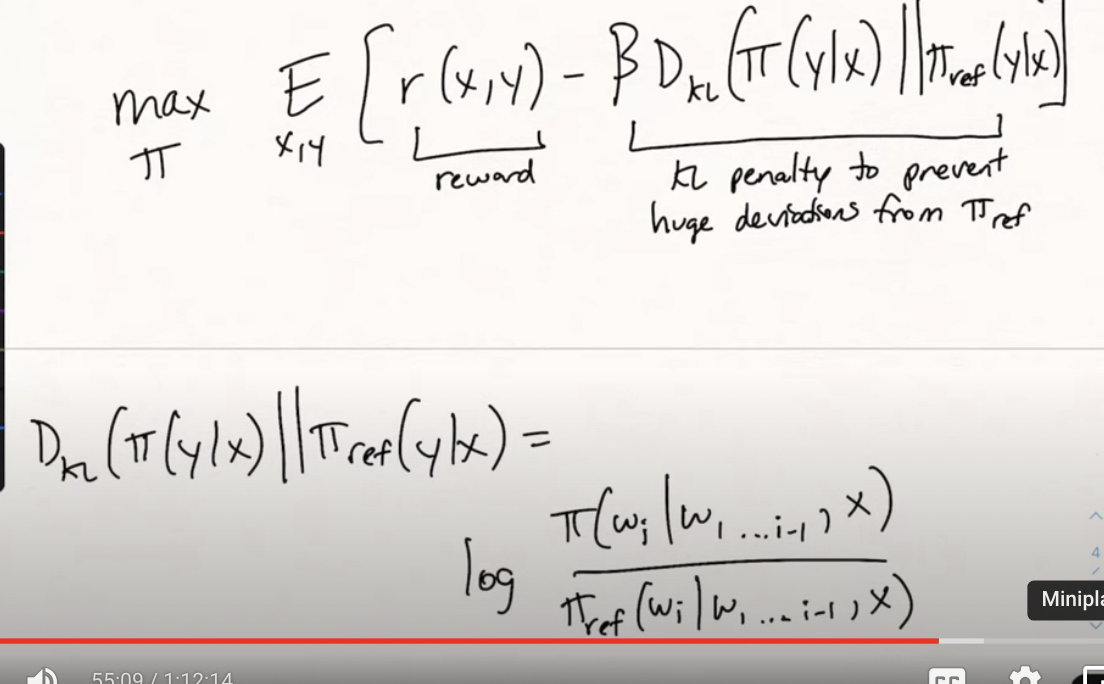 max E [ r(x,y) - β D_KL (π(y|x) || π_ref(y|x)) ]
π x,y
reward KL penalty to prevent
huge deviations from π_ref
D_KL (π(y|x) || π_ref(y|x) =
π(w_i | w_1 ...i-1, x)
log
π_ref (w_i | w_1 ... i-1, x)
4
Minipla
55:09 / 1:12:14
CC